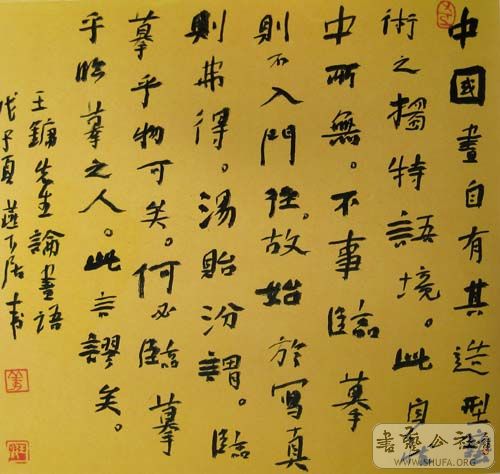 中國畫自有其造型藝
術之獨特語境。此自
中所無。不事臨摹
則不入門徑。故始於寫真
則弗得。湯貽汾謂。臨
摹乎物可矣。何必臨摹
乎臨摹之人。此言謬矣。
王鏞先生論畫語
戊子夏燕下居書
書藝公社
WWW.SHUFA.ORG